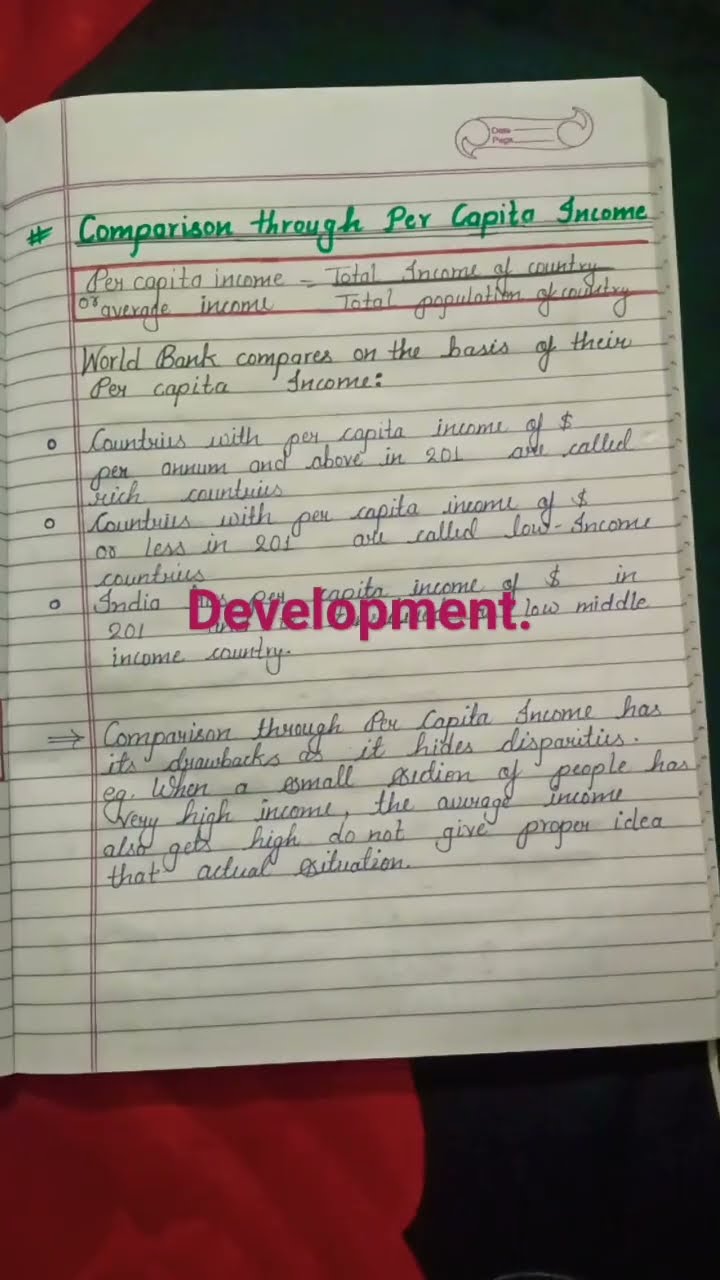 Date
Page
# Comparison through Per Capita Income
Per capita income = Total Income of country
or average income Total population of country
World Bank compares on the basis of their
Per capita Income:
Countries with per capita income of $
per annum and above in 201 are called
rich countries
Countries with per capita income of $
or less in 201 are called low-Income
countries
India per capita income of $ in
Development.
201 low middle
income country.
⇒ Comparison through Per Capita Income has
its drawbacks as it hides disparities.
eg. When a small section of people has
very high income, the average income
also gets high do not give proper idea
that actual situation.